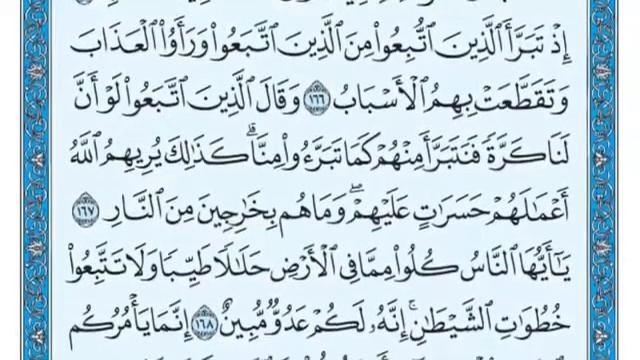 إِذْ تَبَرَّأَ ٱلَّذِينَ ٱتُّبِعُوا۟ مِنَ ٱلَّذِينَ ٱتَّبَعُوا۟ وَرَأَوُا۟ ٱلْعَذَابَ
وَتَقَطَّعَتْ بِهِمُ ٱلْأَسْبَابُ ١٦٦ وَقَالَ ٱلَّذِينَ ٱتَّبَعُوا۟ لَوْ أَنَّ
لَنَا كَرَّةً فَنَتَبَرَّأَ مِنْهُمْ كَمَا تَبَرَّءُوا۟ مِنَّا ۗ كَذَٰلِكَ يُرِيهِمُ ٱللَّهُ
أَعْمَٰلَهُمْ حَسَرَٰتٍ عَلَيْهِمْ ۖ وَمَا هُم بِخَٰرِجِينَ مِنَ ٱلنَّارِ ١٦٧
يَٰٓأَيُّهَا ٱلنَّاسُ كُلُوا۟ مِمَّا فِى ٱلْأَرْضِ حَلَٰلًا طَيِّبًا وَلَا تَتَّبِعُوا۟
خُطُوَٰتِ ٱلشَّيْطَٰنِ ۚ إِنَّهُۥ لَكُمْ عَدُوٌّ مُّبِينٌ ١٦٨ إِنَّمَا يَأْمُرُكُم